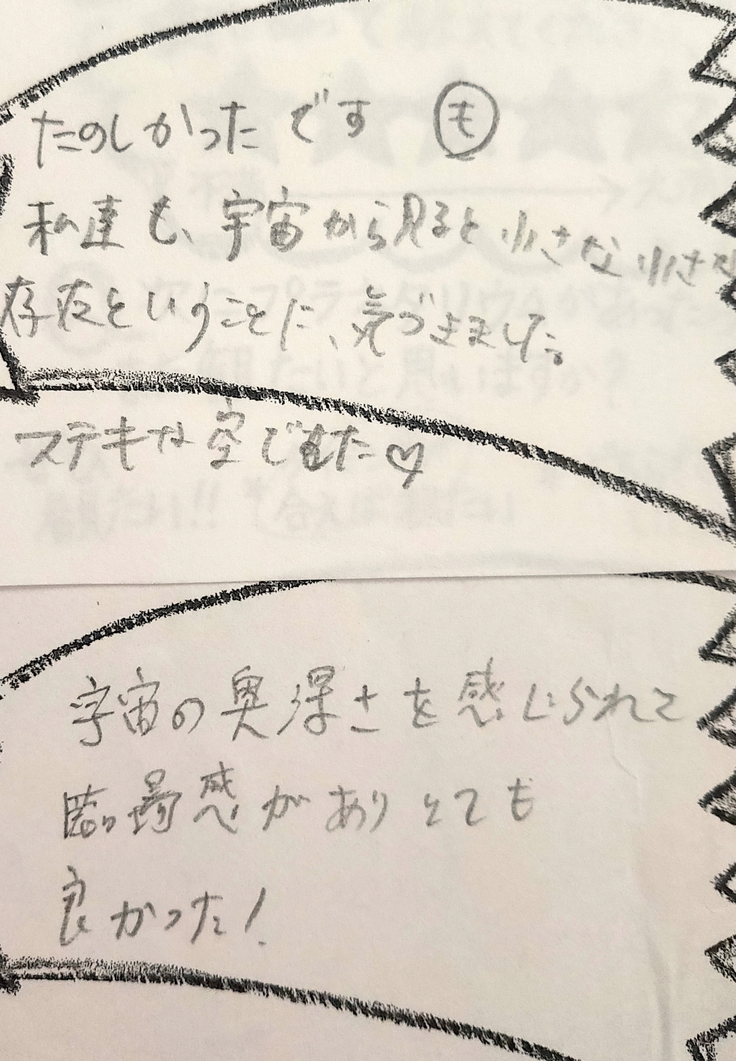 たのしかったです も
私達も、宇宙から見ると小さな小さな
存在ということに、気づきました。
ステキな空でした♡
宇宙の奥深さを感じられて
臨場感がありとても
良かった！